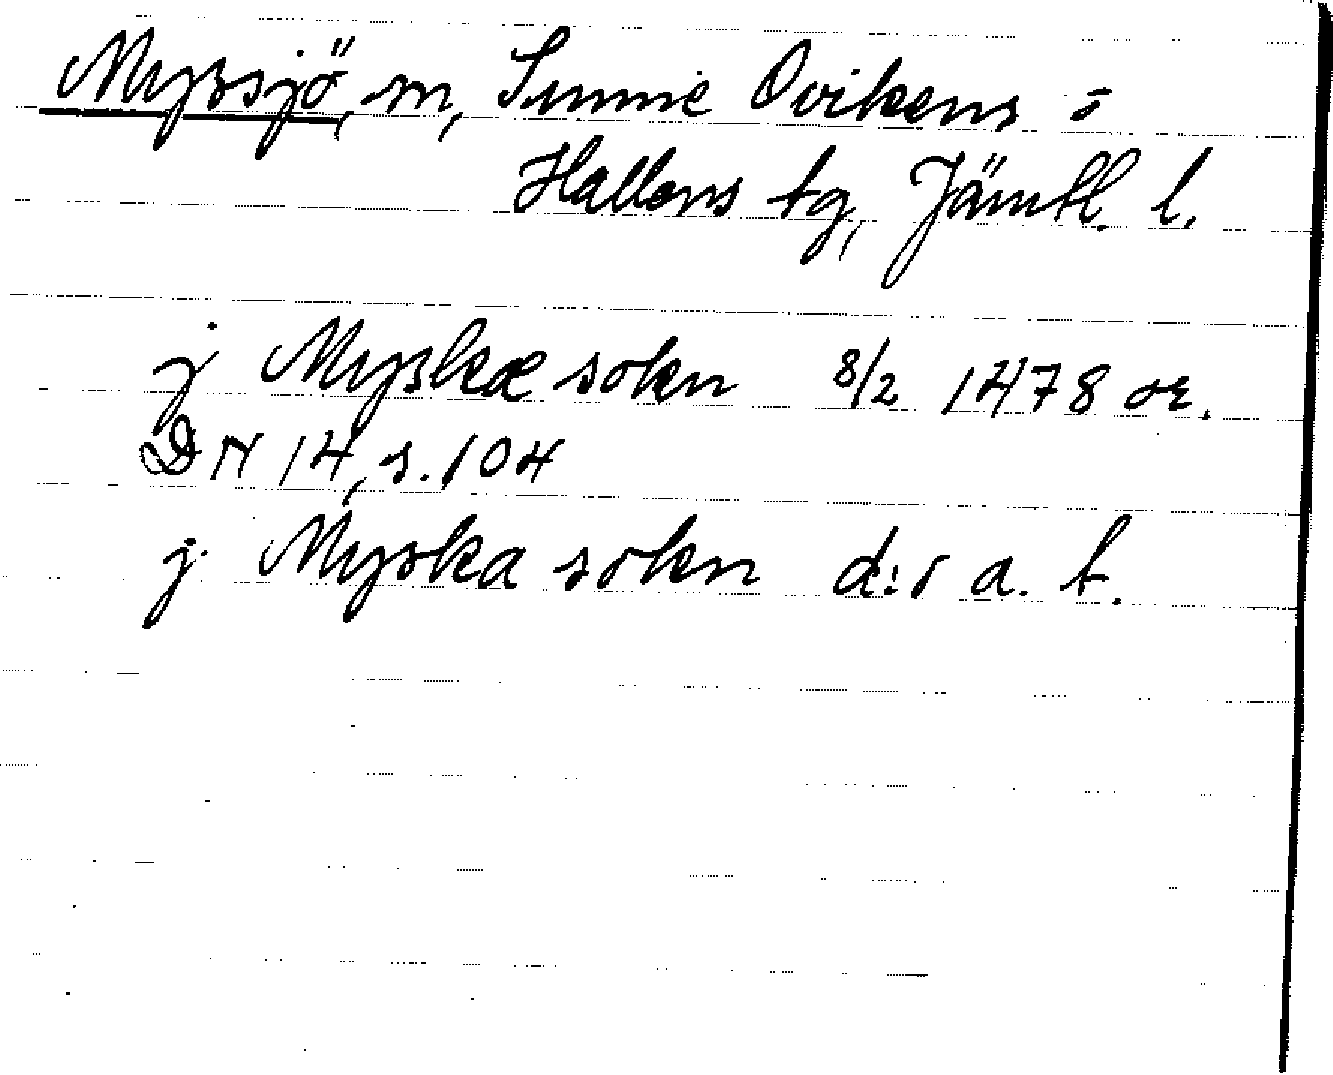 Myssjö, sn, Sunne Ovikens o
Hallens tg, Jämtl. l.
j Myskæ sokn 8/2 1478 or.
DN 14, s. 104
j Myska sokn d:o a. t.